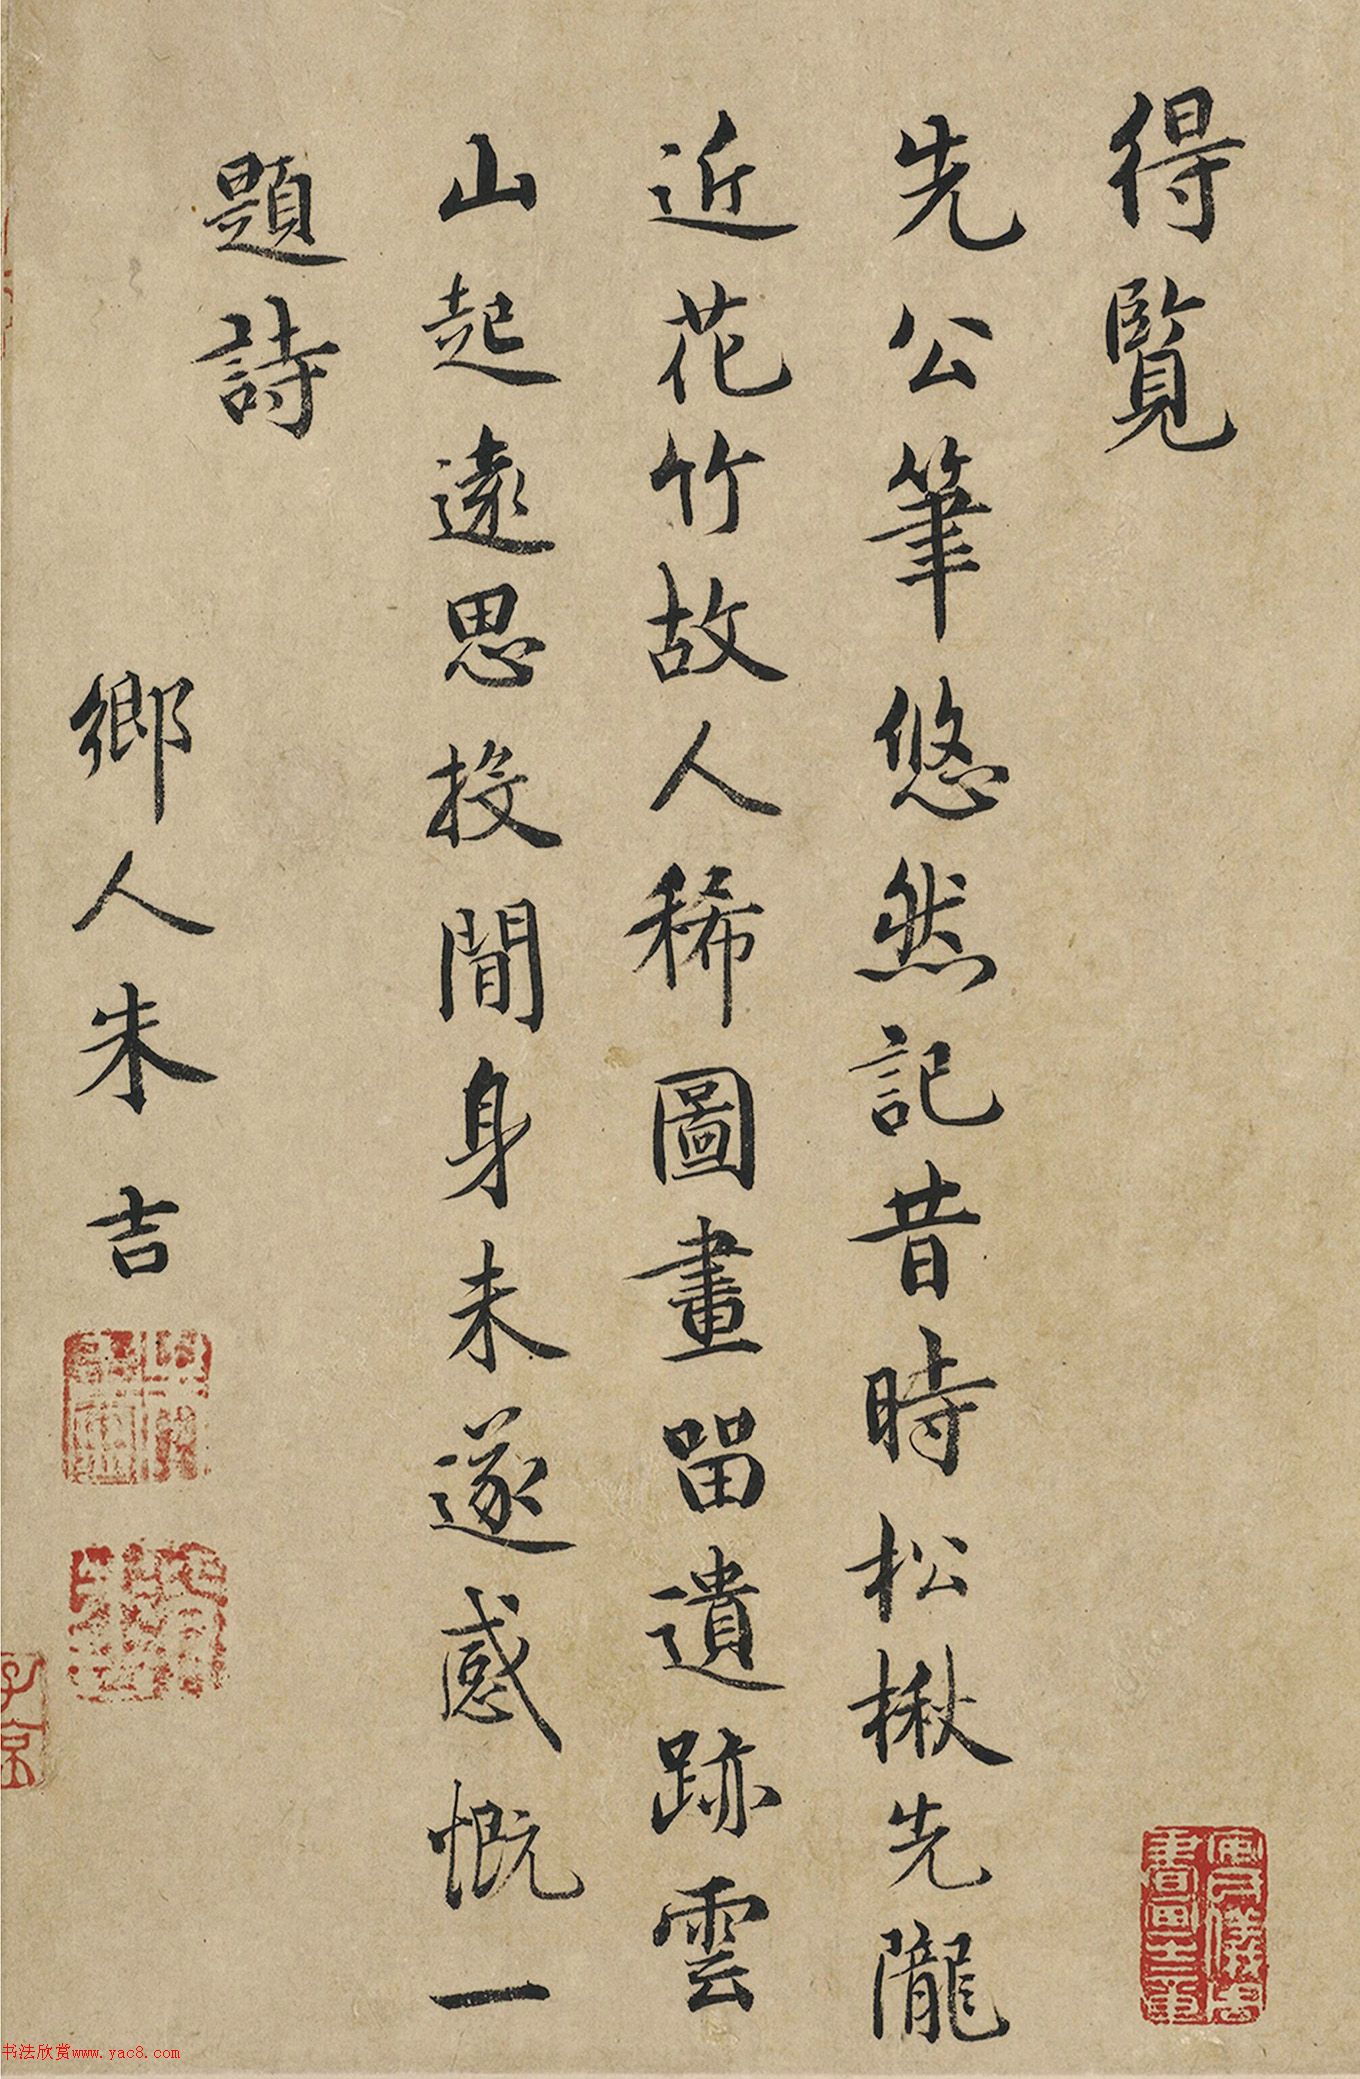 得覧
先公筆悠然記昔時松楸先隴
近花竹故人稀圖畫留遺跡雲
山起遠思投閒身未遂感慨一
題詩
鄉人朱吉
子京
书法欣赏www.yac8.com